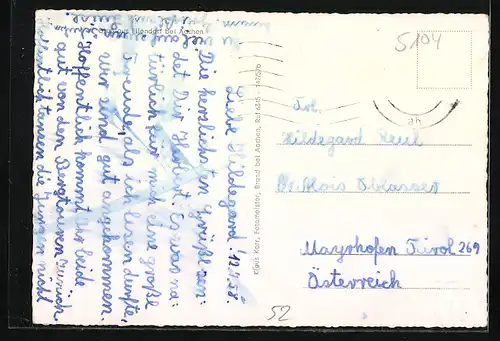 Eilendorf bei Aachen
12.8.58.
Liebe Hildegard!
Die herzlichsten Grüße sen-
det Dir Herbert. Es war na-
türlich für mich eine große
Freude, als ich lesen durfte,
wir sind gut angekommen.
Hoffentlich kommt ihr beide
gut von den Bergtouren zurück
Hoffentlich tanzen die Jungen nicht
zu viel auf
Klaus Kerr, Fotomeister, Brand bei Aachen, Ruf 6345
S104
Frl.
Hildegard Reul
Br. Alois Oblasser
Mayrhofen Tirol 269
Österreich
52